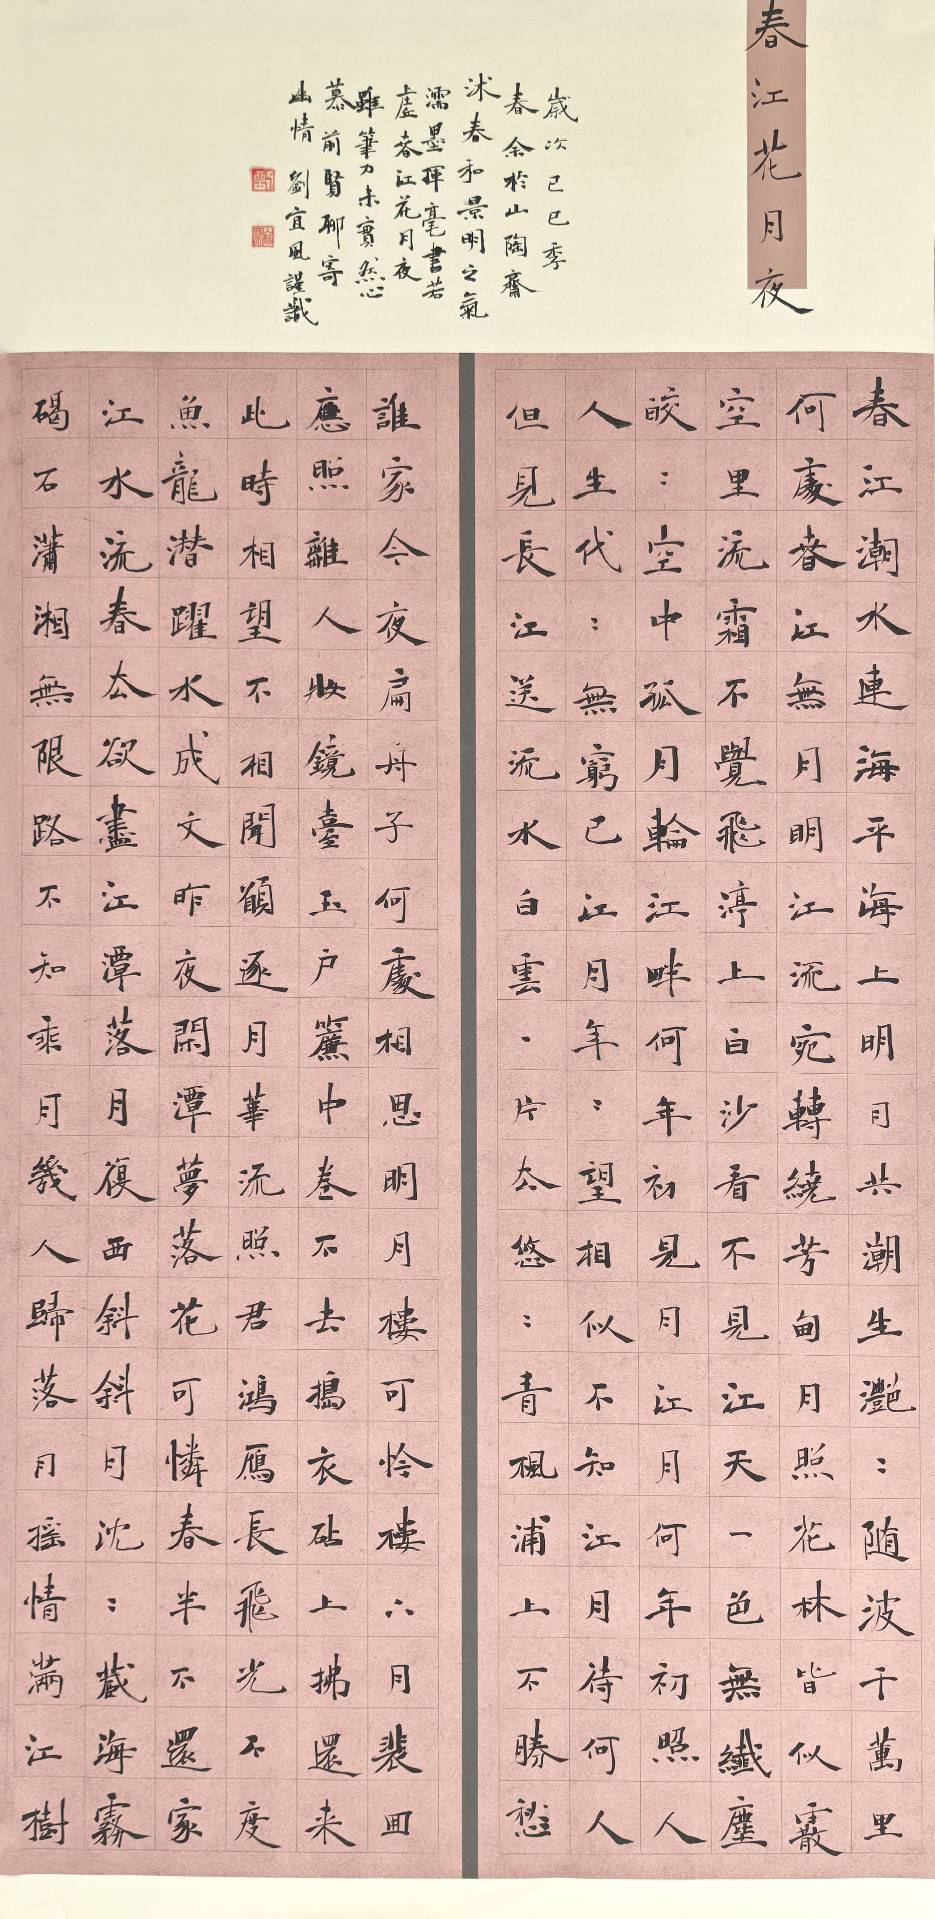 春江花月夜
歲次己巳季
春余於山陶齋
沐春和景明之氣
濡墨揮毫書若
虛春江花月夜
雖筆力未實然心
慕前賢聊寄
幽情 劉宜風謹識
春江潮水連海平海上明月共潮生灧：随波千萬里
何處春江無月明江流宛轉繞芳甸月照花林皆似霰
空里流霜不覺飛渟上白沙看不見江天一色無纖塵
皎：空中孤月輪江畔何年初見月江月何年初照人
人生代：無窮已江月年：望相似不知江月待何人
但見長江送流水白雲一片去悠：青楓浦上不勝愁
誰家今夜扁舟子何處相思明月樓可怜樓上月裴回
應照離人妝鏡臺玉户簾中卷不去搗衣砧上拂還来
此時相望不相聞願逐月華流照君鴻雁長飛光不度
魚龍潜躍水成文昨夜閑潭夢落花可憐春半不還家
江水流春去欲盡江潭落月復西斜斜月沈：藏海霧
碣石瀟湘無限路不知乘月幾人歸落月摇情滿江樹